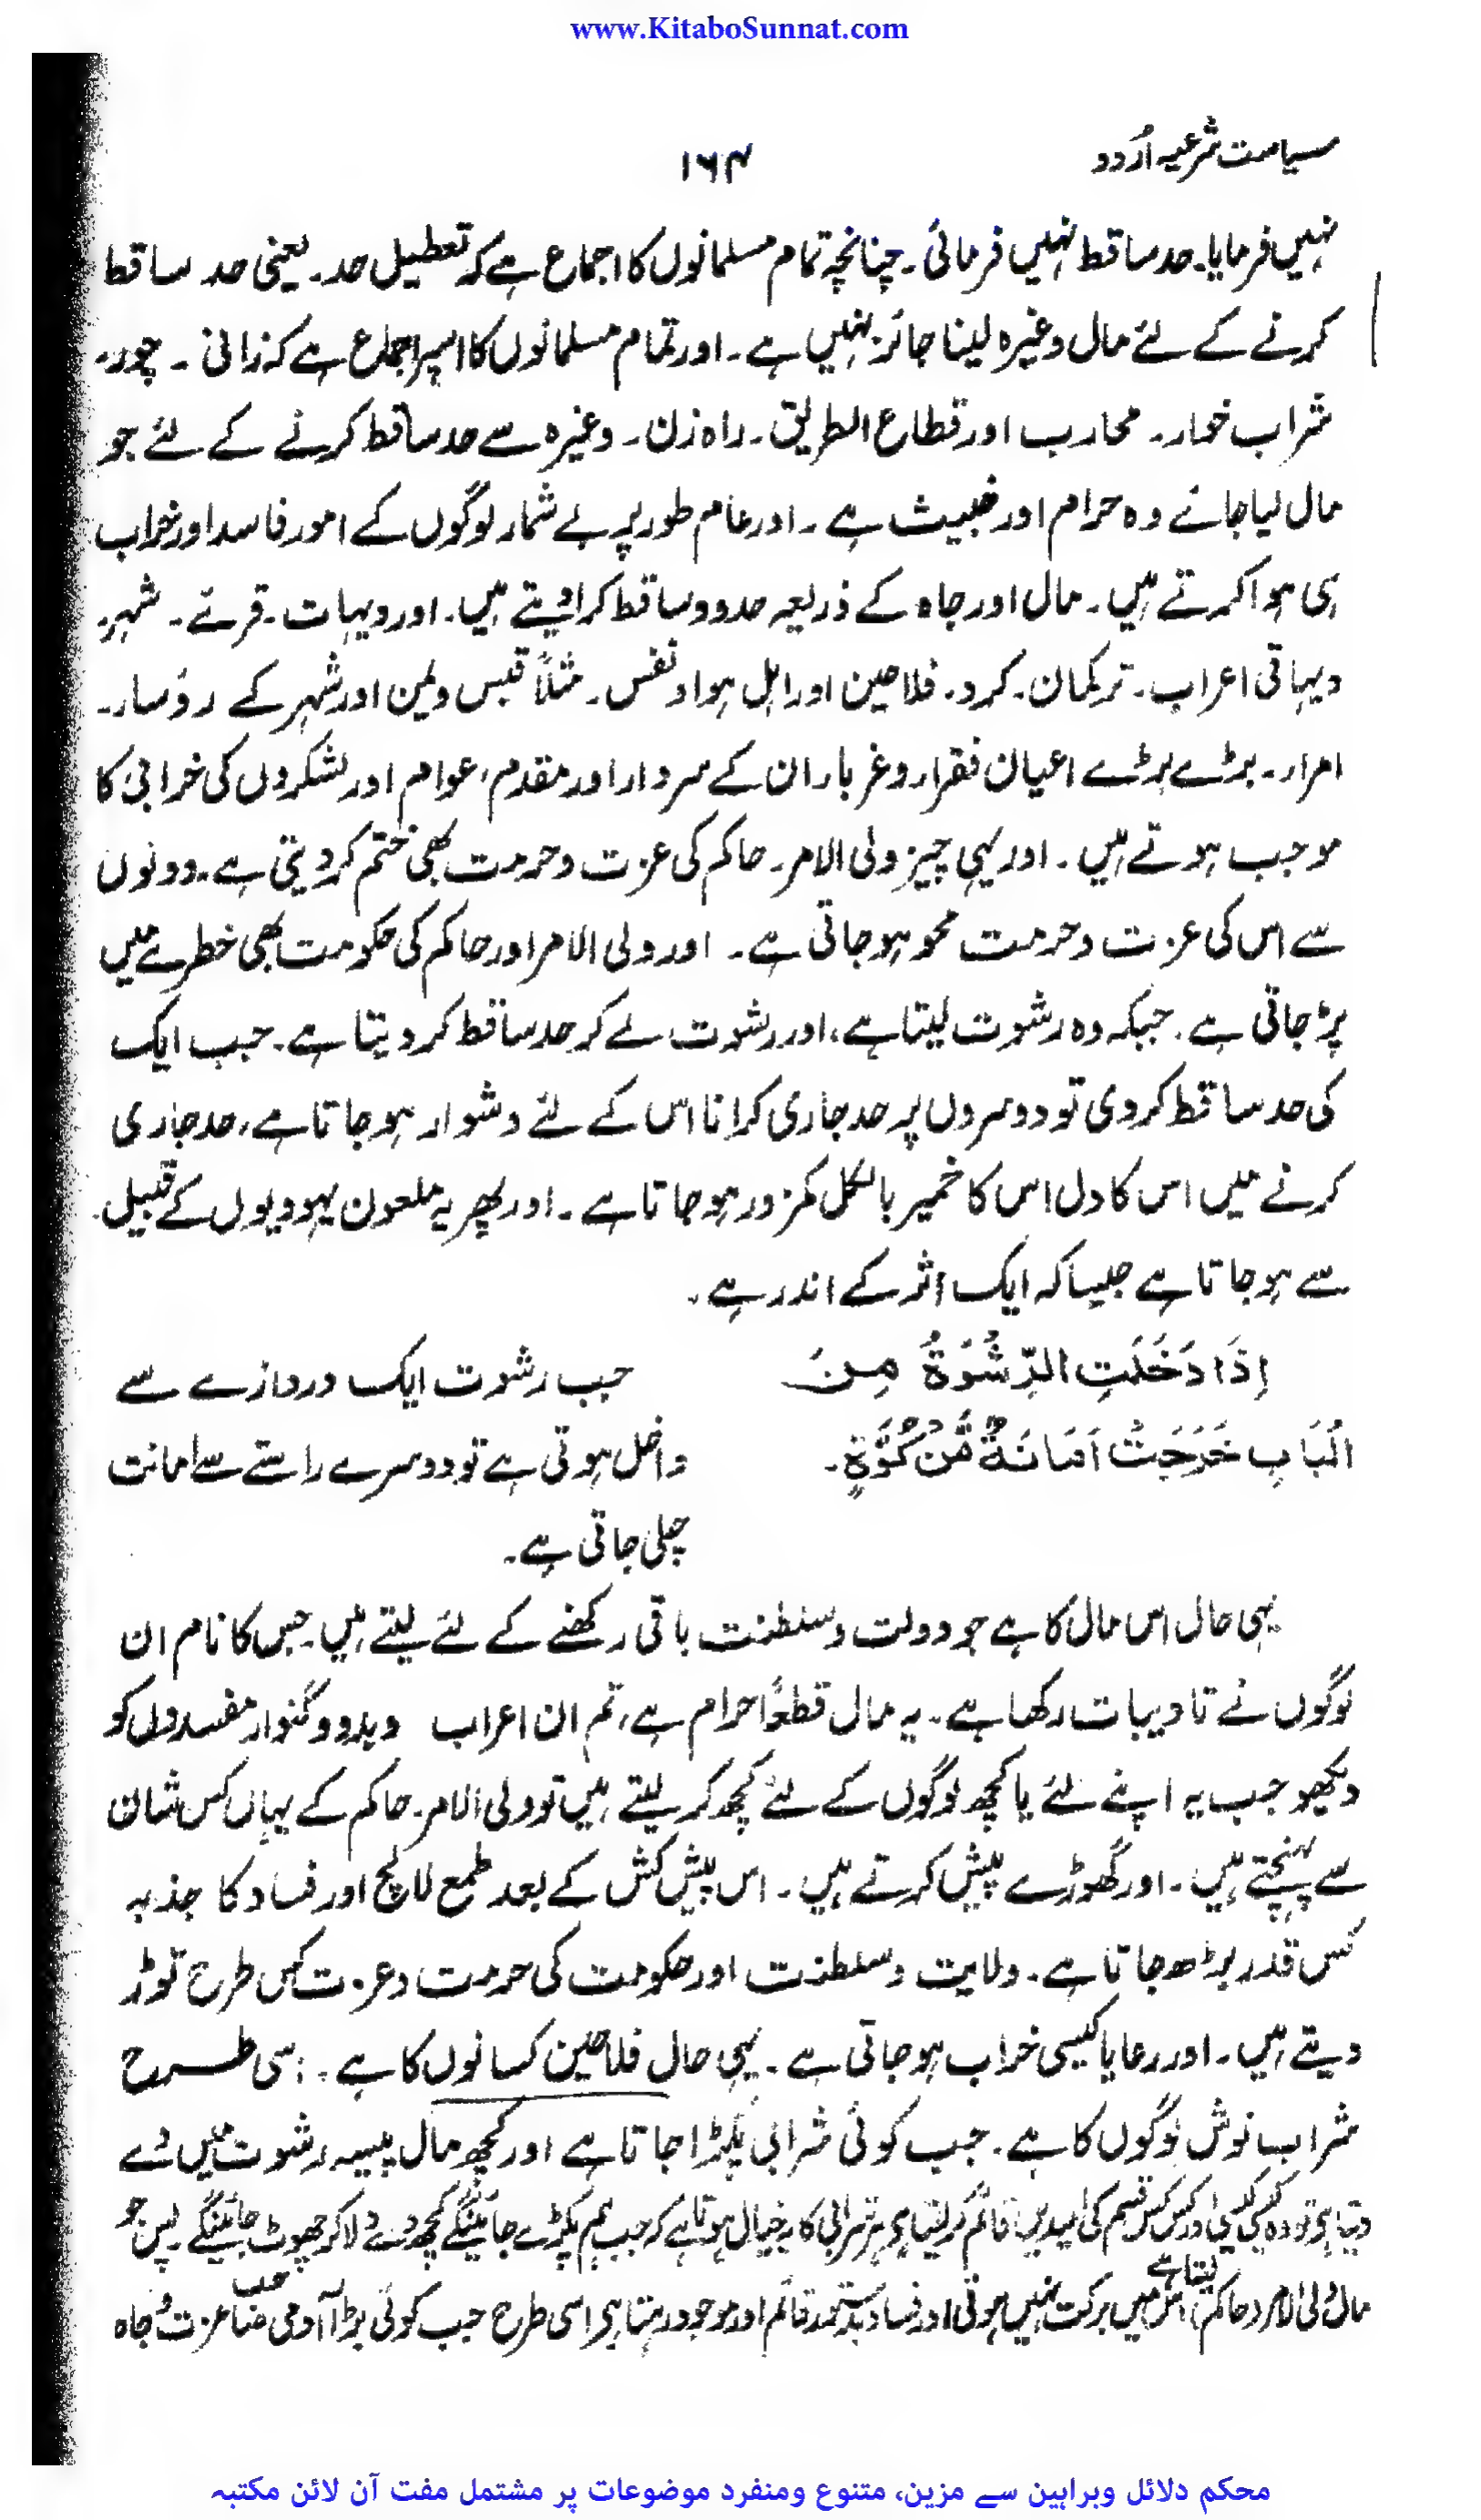 www.KitaboSunnat.com
سیاست شرعیہ اُردو
۱۶۴
نہیں فرمایا۔ حد ساقط نہیں فرمائی۔ چنانچہ تمام مسلمانوں کا اجماع ہے کہ تعطیل حد۔ یعنی حد ساقط
کرنے کے لئے مال وغیرہ لینا جائز نہیں ہے۔ اور تمام مسلمانوں کا اسپر اجماع ہے کہ زانی۔ چور۔
شراب خوار۔ محارب اور قطاع الطریق۔ راہ زن۔ وغیرہ سے حد ساقط کرنے کے لئے جو
مال لیا جائے وہ حرام اور خبیث ہے۔ اور عام طور پر بے شمار لوگوں کے امور فاسد اور خراب
ہی ہوا کرتے ہیں۔ مال اور جاہ کے ذریعہ حدود ساقط کرا دیتے ہیں۔ اور دیہات۔ قرئے۔ شہر۔
دیہاتی اعراب۔ ترکمان۔ کرد۔ فلاحین اور اہل ہوا و نفس۔ مثلاً قبس ویمن اور شہر کے رؤسار۔
امرار۔ بڑے بڑے اعیان فقرار وغربار ان کے سردار اور مقدم، عوام اور لشکروں کی خرابی کا
موجب ہوتے ہیں۔ اور یہی چیز ولی الامر۔ حاکم کی عزت وحرمت بھی ختم کر دیتی ہے۔ دونوں
سے اس کی عزت وحرمت محو ہو جاتی ہے۔ اور ولی الامر اور حاکم کی حکومت بھی خطرے میں
پڑ جاتی ہے۔ جبکہ وہ رشوت لیتا ہے، اور رشوت لے کر حد ساقط کر دیتا ہے۔ جب ایک
کی حد ساقط کردی تو دوسروں پر حد جاری کرانا اس کے لئے دشوار ہو جاتا ہے، حد جاری
کرنے میں اس کا دل اس کا ضمیر بالکل کمزور ہو جاتا ہے۔ اور پھر یہ ملعون یہودیوں کے قبیل
سے ہو جاتا ہے جیسا کہ ایک اثر کے اندر ہے۔
اِذَا دَخَلَتِ الرِّشْوَۃُ مِنَ
جب رشوت ایک دروازے سے
الْبَابِ خَرَجَتْ اَمَانَۃٌ مِّنْ کُوَّۃٍ۔
داخل ہوتی ہے تو دوسرے راستے سے امانت
چلی جاتی ہے۔
یہی حال اس مال کا ہے جو دولت وسلطنت باقی رکھنے کے لئے لیتے ہیں۔ جس کا نام ان
لوگوں نے تادیبات رکھا ہے۔ یہ مال قطعاً حرام ہے، تم ان اعراب وبدو وگنوار مفسدوں کو
دیکھو جب یہ اپنے لئے یا کچھ لوگوں کے لئے کچھ کر لیتے ہیں تو ولی الامر۔ حاکم کے یہاں کس شان
سے پہنچتے ہیں۔ اور گھوڑے پیش کرتے ہیں۔ اس پیش کش کے بعد طمع لالچ اور فساد کا جذبہ
کس قدر بڑھ جاتا ہے۔ ولایت وسلطنت اور حکومت کی حرمت وعزت کس طرح توڑ
دیتے ہیں۔ اور رعایا کیسی خراب ہو جاتی ہے۔ یہی حال فلاحین کسانوں کا ہے۔ اسی طرح
شراب نوش لوگوں کا ہے۔ جب کوئی شرابی پکڑا جاتا ہے اور کچھ مال پیسہ رشوت میں دے
دیتا ہے تو وہ کیسی کیسی اور کس کس قسم کی امیدیں قائم کر لیتا ہے ہر شرابی کا یہ خیال ہوتا ہے کہ جب ہم پکڑے جائینگے کچھ دے دلا کر چھوٹ جائینگے پس جو
مال ولی الامر وحاکم لیتا ہے اس میں برکت نہیں ہوتی اور فساد بدستور قائم اور موجود رہتا ہے اسی طرح جب کوئی بڑا آدمی صاحب عزت وجاہ
محکم دلائل وبراہین سے مزین، متنوع ومنفرد موضوعات پر مشتمل مفت آن لائن مکتبہ